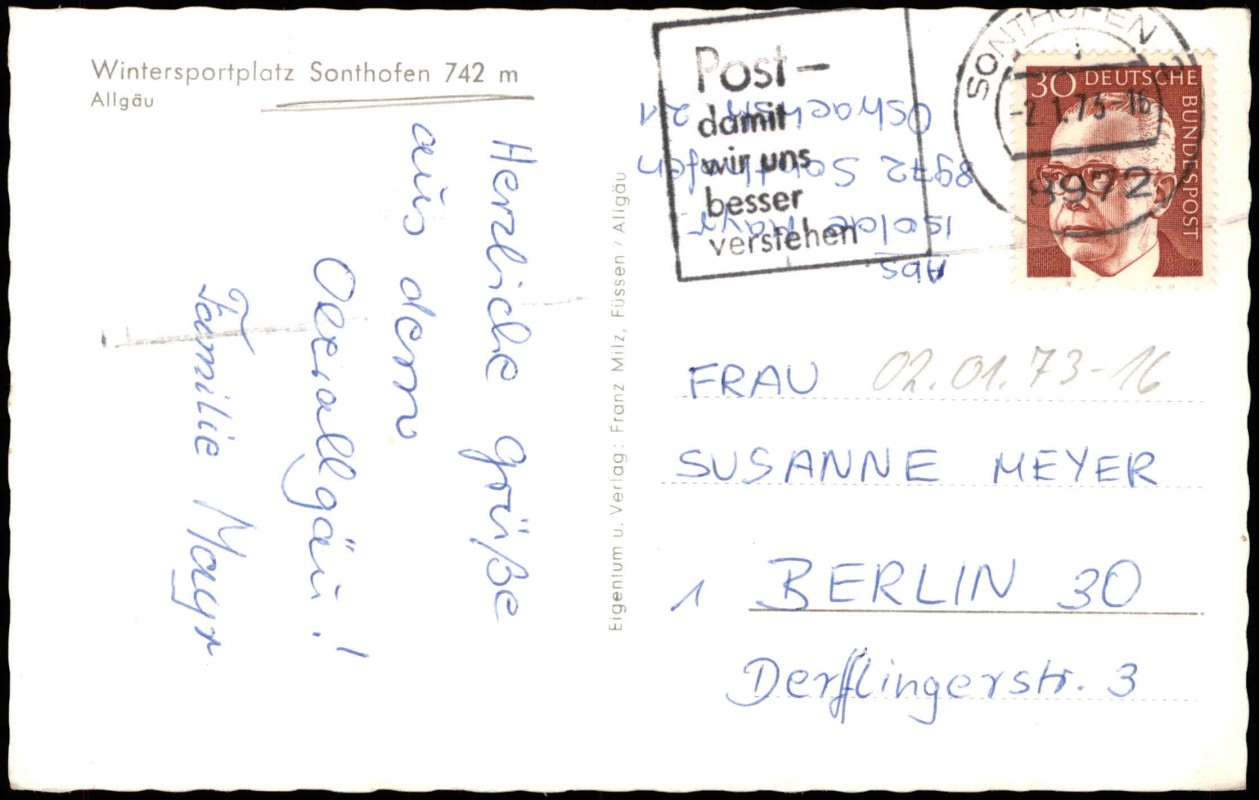 Wintersportplatz Sonthofen 742 m
Allgäu
Herzliche Grüße
aus dem
Oberallgäu!
Familie Mayr
Eigentum u. Verlag: Franz Milz, Füssen / Allgäu
Post-
damit
wir uns
besser
verstehen
SONTHOFEN
-2.1.73-16
8972
30 DEUTSCHE
BUNDESPOST
Abs.
Isolde Mayr
8972 Sonthofen
21
FRAU 02.01.73-16
SUSANNE MEYER
1 BERLIN 30
Derfflingerstr. 3